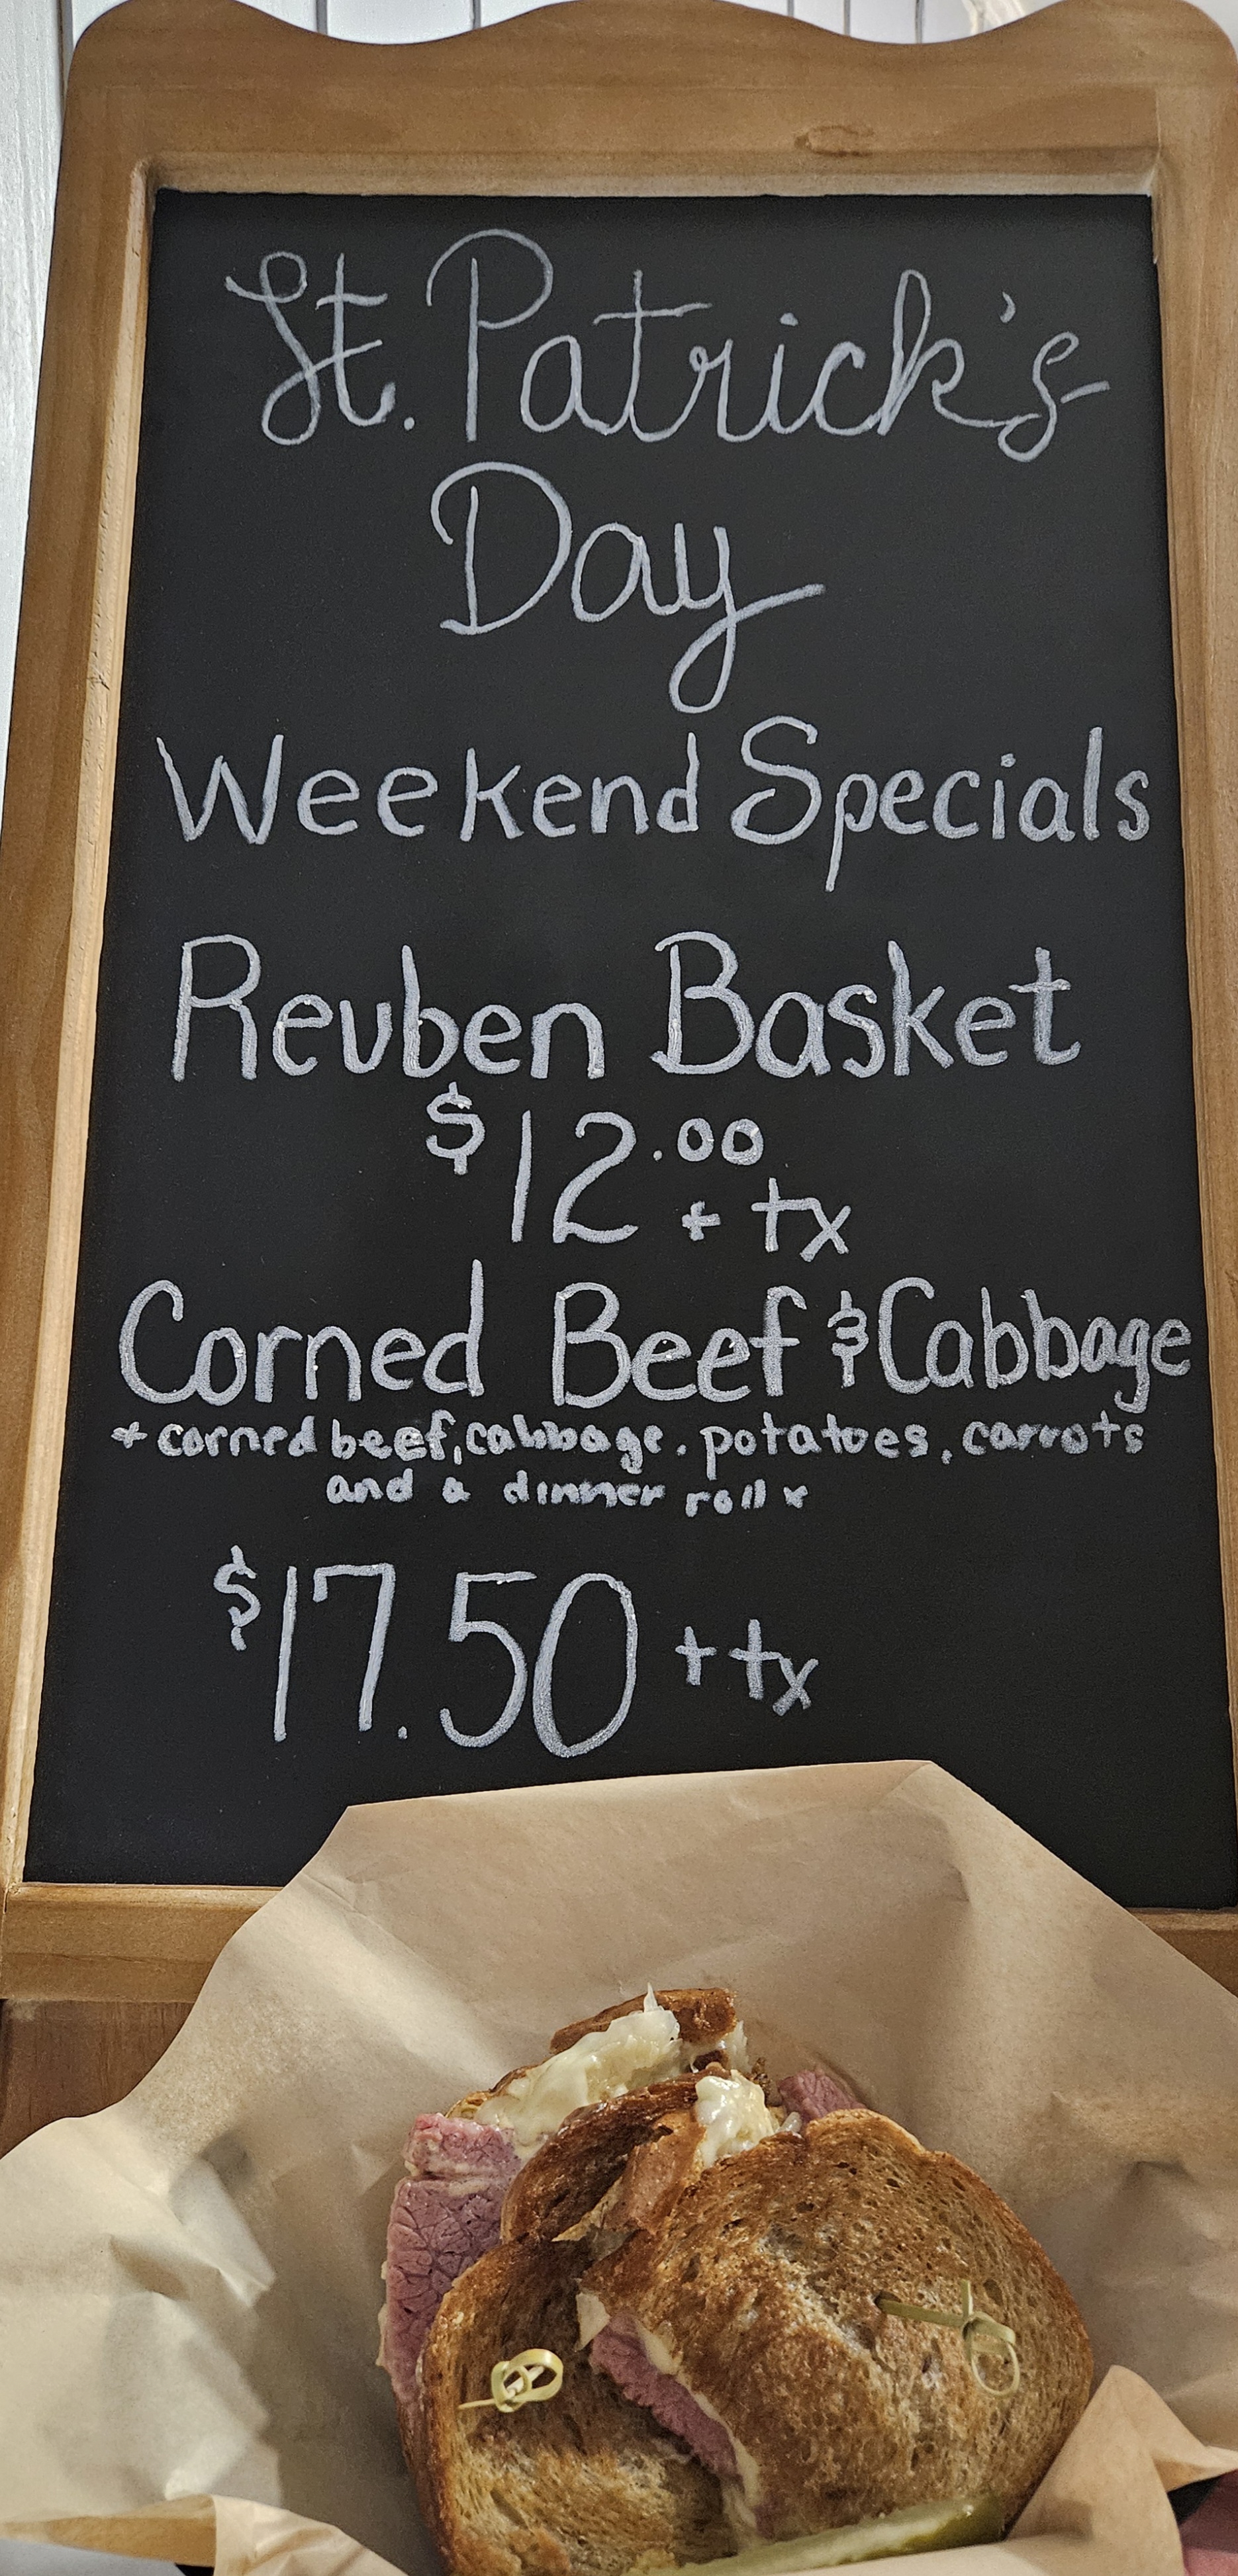 St. Patrick's
Day
Weekend Specials
Reuben Basket
$12.00 + tx
Corned Beef & Cabbage
* corned beef, cabbage, potatoes, carrots
and a dinner roll *
$17.50 + tx